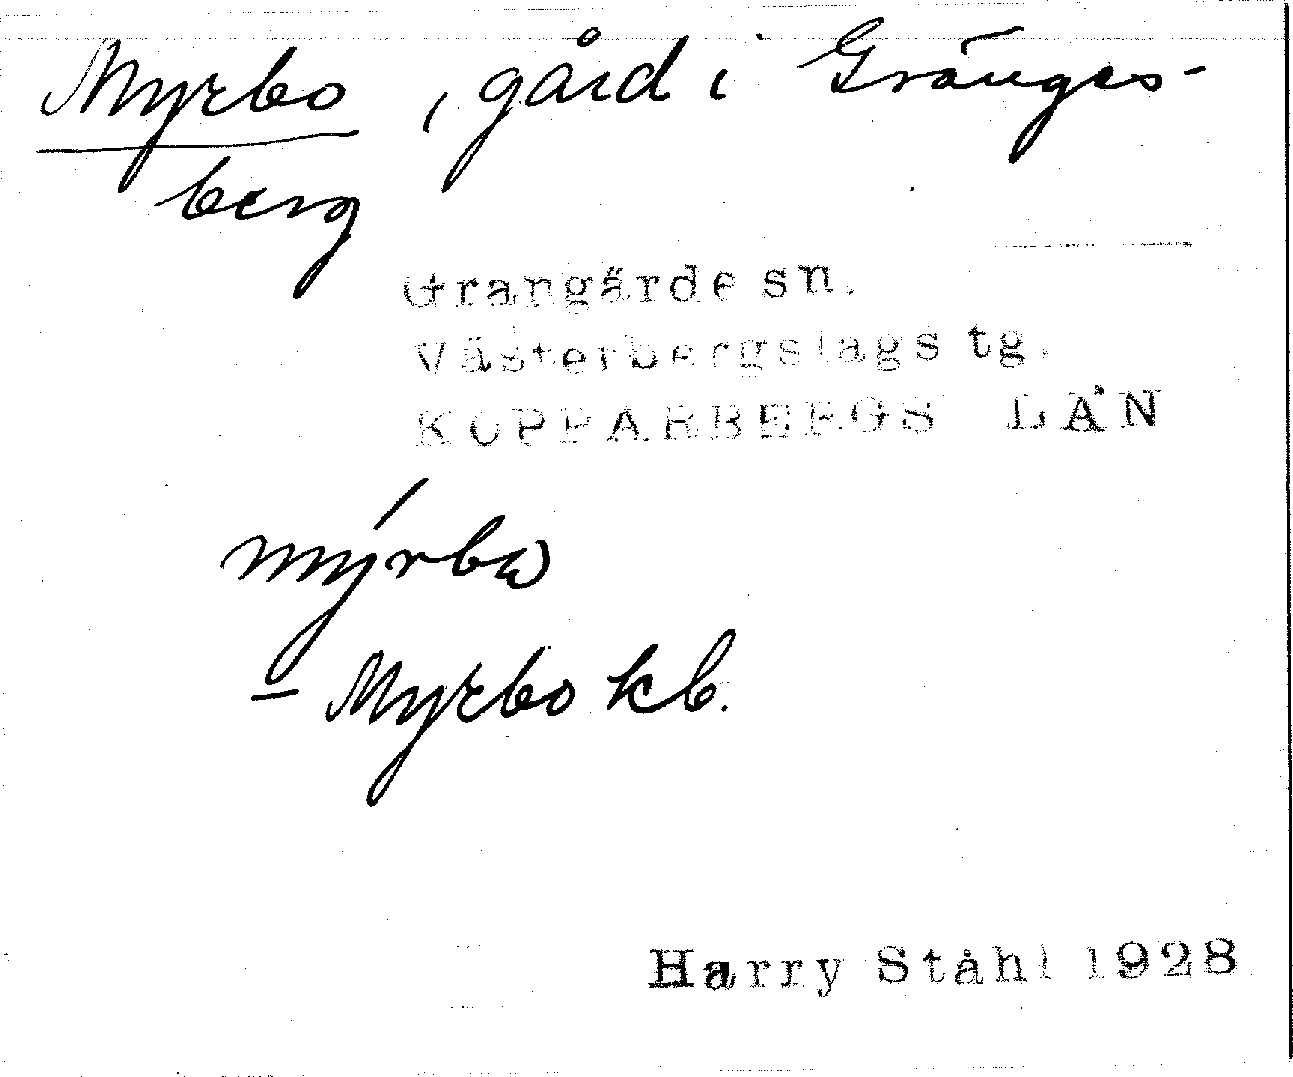 Myrbo, gård i Gränges-
berg
Grangärde sn.
Västerbergslags tg.
KOPPARBERGS LÄN
– Myrbo kb.
Harry Ståhl 1928